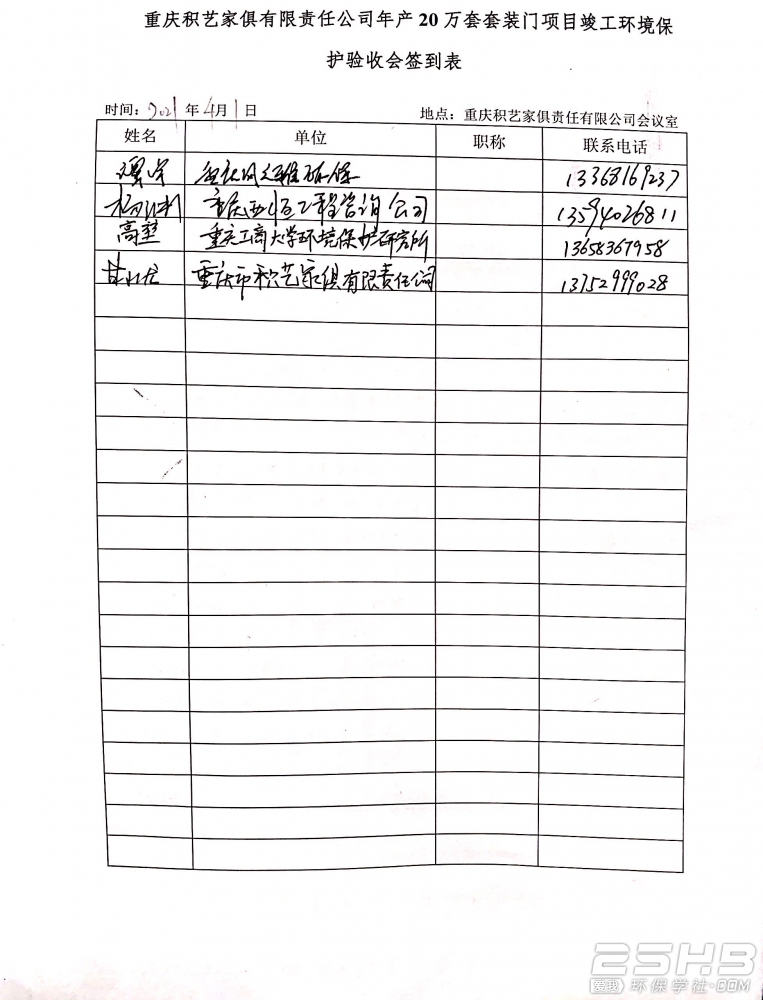 重庆积艺家俱有限责任公司年产 20 万套套装门项目竣工环境保
护验收会签到表
时间：2021 年 4月1日 地点：重庆积艺家俱责任有限公司会议室
姓名 单位 职称 联系电话
13368169237
重庆西恒工程咨询公司 13594026811
高堃 重庆工商大学环境保护研究所 13658367958
重庆市积艺家俱有限责任公司 13752999028
25HB
爱我 环保学社.COM